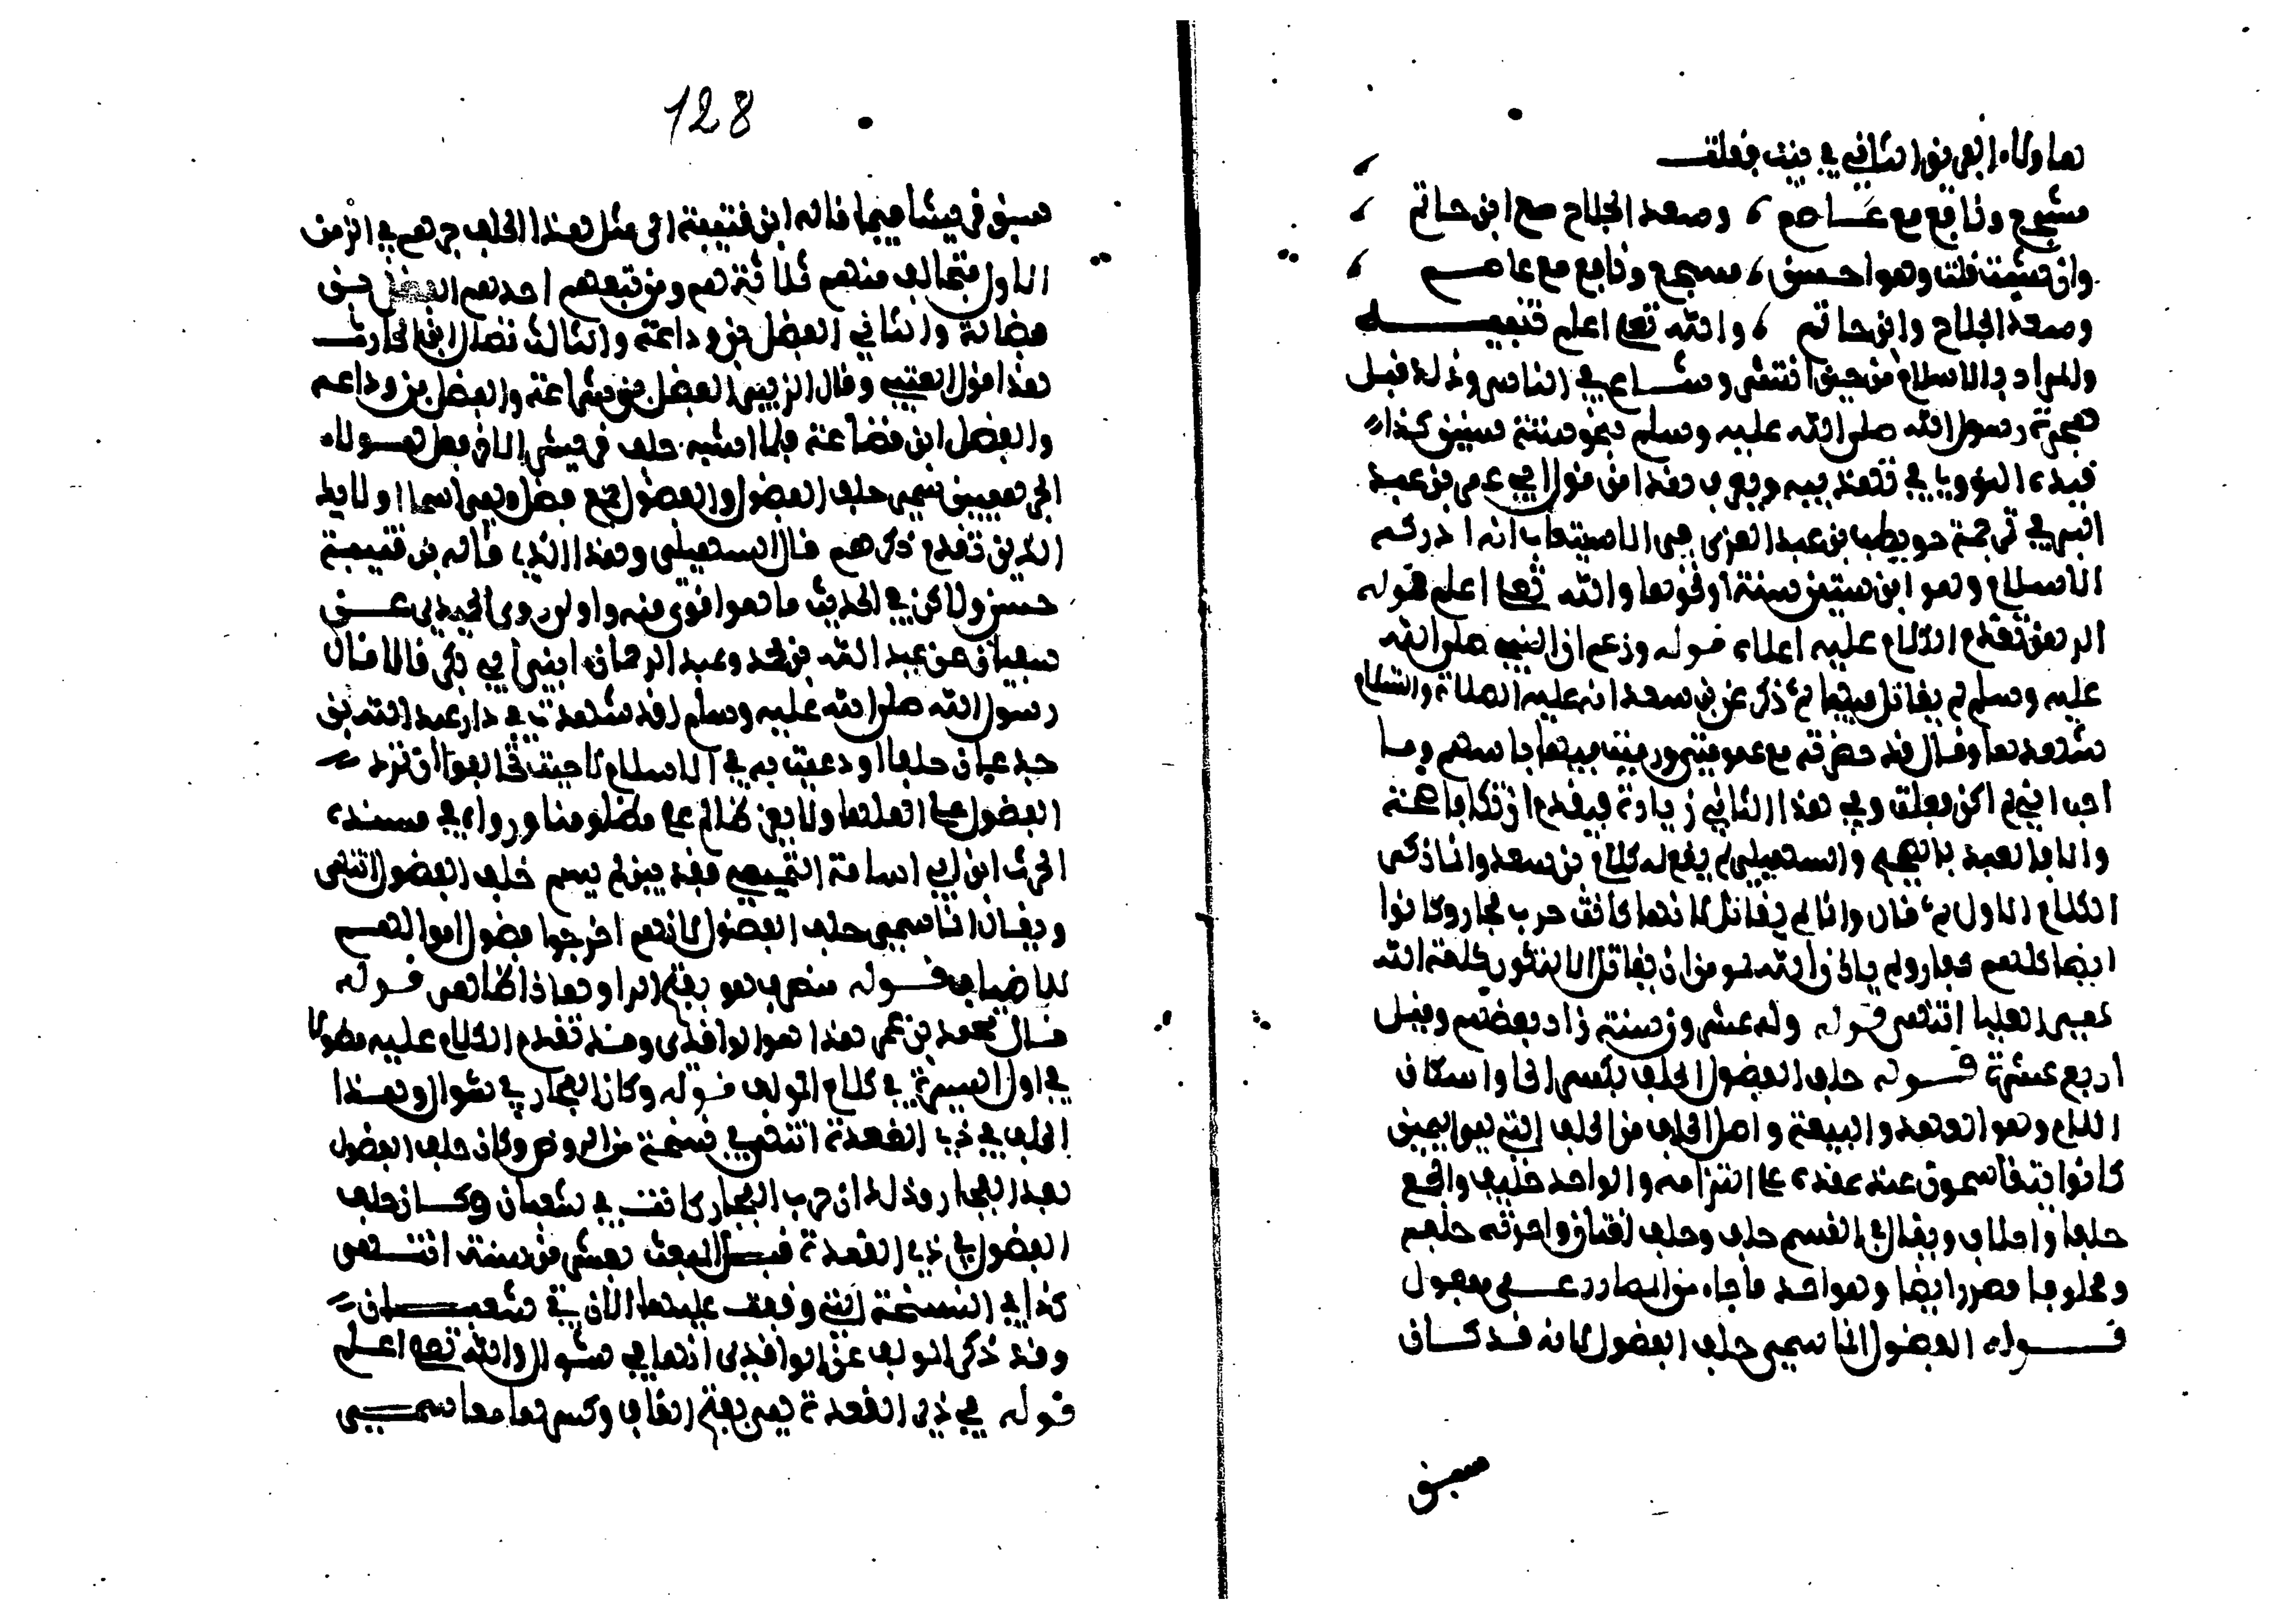 هاولاء الفريق الثاني في بيت فقلت
مشرح ونافع مع عاصم ، وسعد الجلاح مع ابن حاتم
وان شيت قلت وهوا حسن ، مسرح ونافع مع عاصم
وسعد الجلاح وابن حاتم ، والله تعا اعلم تنبيه
والمراد بالاسلام من حين انتشر وشاع في الناس وذلك قبل
هجرة رسول الله صلى الله عليه وسلم بنحو ستة سنين كذا
قيده النووي في تهذيبه ويعرف هذا من قول ابي عمر بن عبد
البر في ترجمة حويطب بن عبد العزى في الاستيعاب انه ادركه
الاسلام وهو ابن ستين سنة او نحوها والله تعا اعلم قوله
الرهن تقدم الكلام عليه اعلاه قوله وزعم ان النبي صلى الله
عليه وسلم لم يقاتل فيها ثم ذكر عن بن سعد انه عليه الصلاة والسلام
شهدها وقال قد حضرته مع عمومتي ورميت فيها باسهم وما
احب اني لم اكن فعلت وفي هذا الثاني زيادة فيقدم ان تكافا همته
والا فالعبد بالصحيح والسهيلي لم يقع له كلام بن سعد وانما ذكر
الكلام الاول ثم قال وانما لم يقاتل لانها كانت حرب فجار وكانوا
ايضا كلهم كفار ولم ياذن الله لمومن ان يقاتل الا لتكون كلمة الله
هي العليا انتهى قوله وله عشرون سنة زاد بعضهم وقيل
اربع عشرة قوله حلف الفضول الحلف بكسر الحا واسكان
اللام وهو العهد والبيعة واصل الحلف من الحلف التي هو اليمين
كانوا يتقاسمون عند عقده على التزامه والواحد حليف والجمع
حلفا واحلاف ويقال في القسم حلف وحلف لغتان واحرته حلفهم
ومحلوفا مصدر ايضا وهو احد ما جاء من المصادر على مفعول
قوله الفضول انما سمي حلف الفضول لانه قد كان
سبق
128
سبق قريشا فيما قاله ابن قتيبة الى مثل هذا الحلف جرهم في الزمن
الاول فتحالف منهم ثلاثة هم ومن تبعهم احدهم الفضل بن
فضالة والثاني الفضل بن وداعة والثالث فضل ابن الحارث
هذا قول القتبي وقال الزبير الفضل بن شراعة والفضل بن وداعه
والفضل ابن قضاعة فلما اشبه حلف قريش الاخر فعل هولاء
الجرهميين سمي حلف الفضول والفضول جمع فضل وهي اسما اولايك
الذين تقدم ذكرهم قال السهيلي وهذا الذي قاله بن قتيبة
حسن ولاكن في الحديث ما هوا اقوى منه واولى روى الحميدي عن
سفيان عن عبد الله بن محمد وعبد الرحمان ابني ابي بكر قالا قال
رسول الله صلى الله عليه وسلم لقد شهدت في دار عبد الله بن
جدعان حلفا لو دعيت به في الاسلام لاجبت تحالفوا ان ترد
الفضول على اهلها ولا يعز ظالم على مظلوما ورواه في مسنده
الحرث ابن ابي اسامة التميمي فقد بين لم سمي حلف الفضول انتهى
ويقال انما سمي حلف الفضول لانهم اخرجوا فضول اموالهم
للاضياف قوله منصرف هو بفتح الرا وهاذا ظاهر قوله
قال محمد بن عمر هذا هوا الواقدي وقد تقدم الكلام عليه مطولا
في اول السيرة في كلام المولف قوله وكان الفجار في شوال وهذا
الحلف في ذي القعدة انتهى في نسخة من الروض وكان حلف الفضول
بعد الفجار وذلك ان حرب الفجار كانت في شعبان وكان حلف
الفضول في ذي القعدة قبل المبعث بعشرين سنة انتهى
كذا في النسخة التي وقفت عليها الان في شعبان
وقد ذكر المولف عن الواقدي انها في شوال والله تعا اعلم
قوله في ذي القعدة هي بفتح القاف وكسرها معا سمي